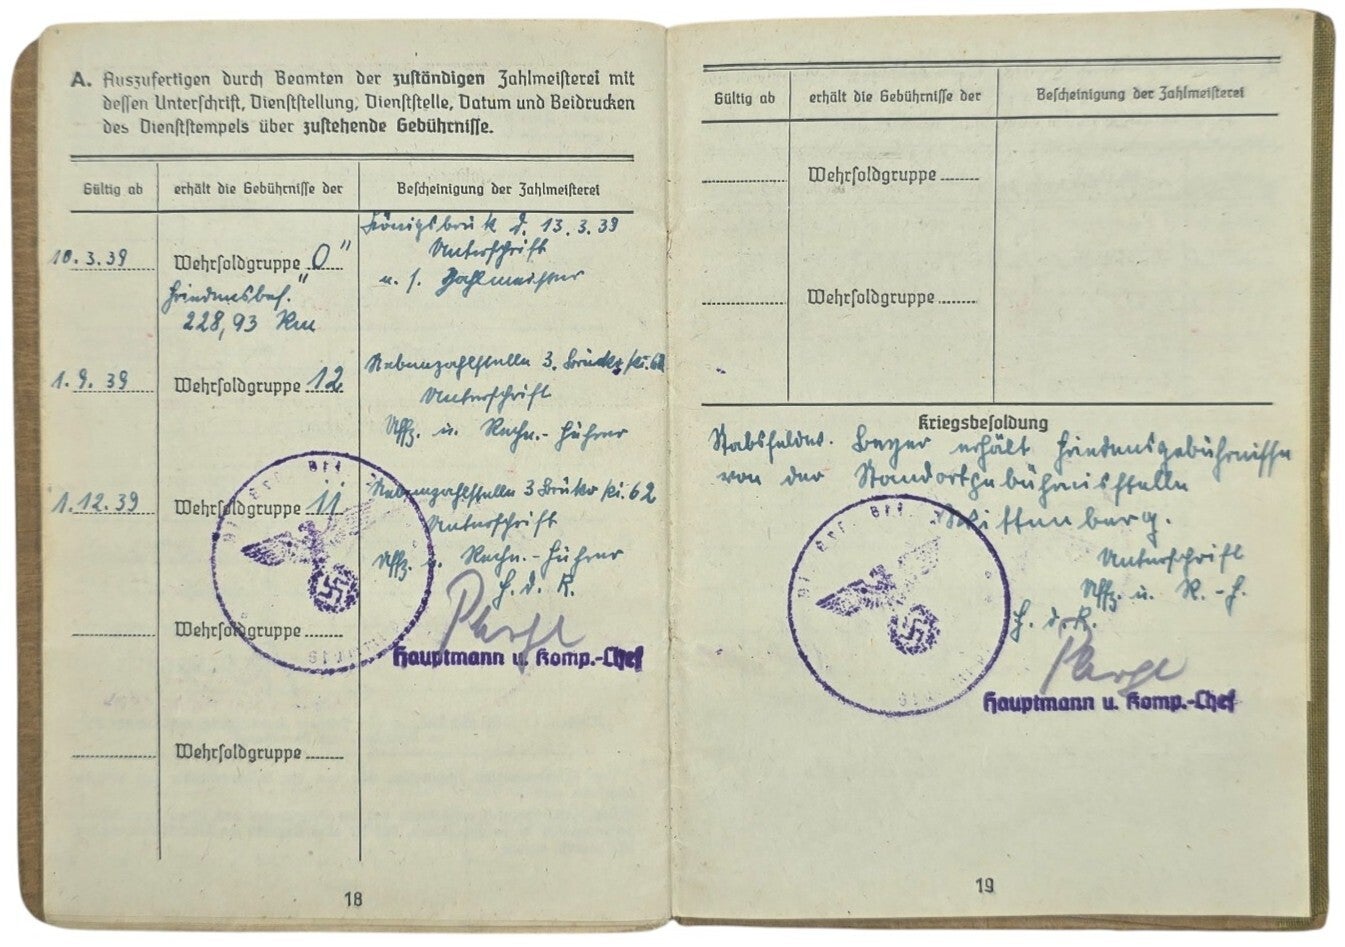 A. Auszufertigen durch Beamten der zuständigen Zahlmeisterei mit
dessen Unterschrift, Dienststellung, Dienststelle, Datum und Beidrucken
des Dienststempels über zustehende Gebührnisse.
Gültig ab erhält die Gebührnisse der Bescheinigung der Zahlmeisterei
Königsbrück d. 13.3.39
10.3.39 Wehrsoldgruppe „0" Unterschrift
u. s. Zahlmeister
Friedensbes.
228,93 Rm
1.9.39 Wehrsoldgruppe 12 Nebenzahlstelle 3. Brüko Pi. 62
Unterschrift
Uffz. u. Rechn.-Führer
1.12.39 Wehrsoldgruppe 11 Nebenzahlstelle 3 Brüko Pi. 62
Unterschrift
Uffz. u. Rechn.-Führer
F. d. R.
Wehrsoldgruppe
Hauptmann u. Komp.-Chef
Wehrsoldgruppe
18
Gültig ab erhält die Gebührnisse der Bescheinigung der Zahlmeisterei
Wehrsoldgruppe
Wehrsoldgruppe
Kriegsbesoldung
Stabsfeldw. Beyer erhält Friedensgebührnisse
von der Standortgebührnisstelle
Wittenberg.
Unterschrift
Uffz. u. R.-F.
F. d. R.
Hauptmann u. Komp.-Chef
19